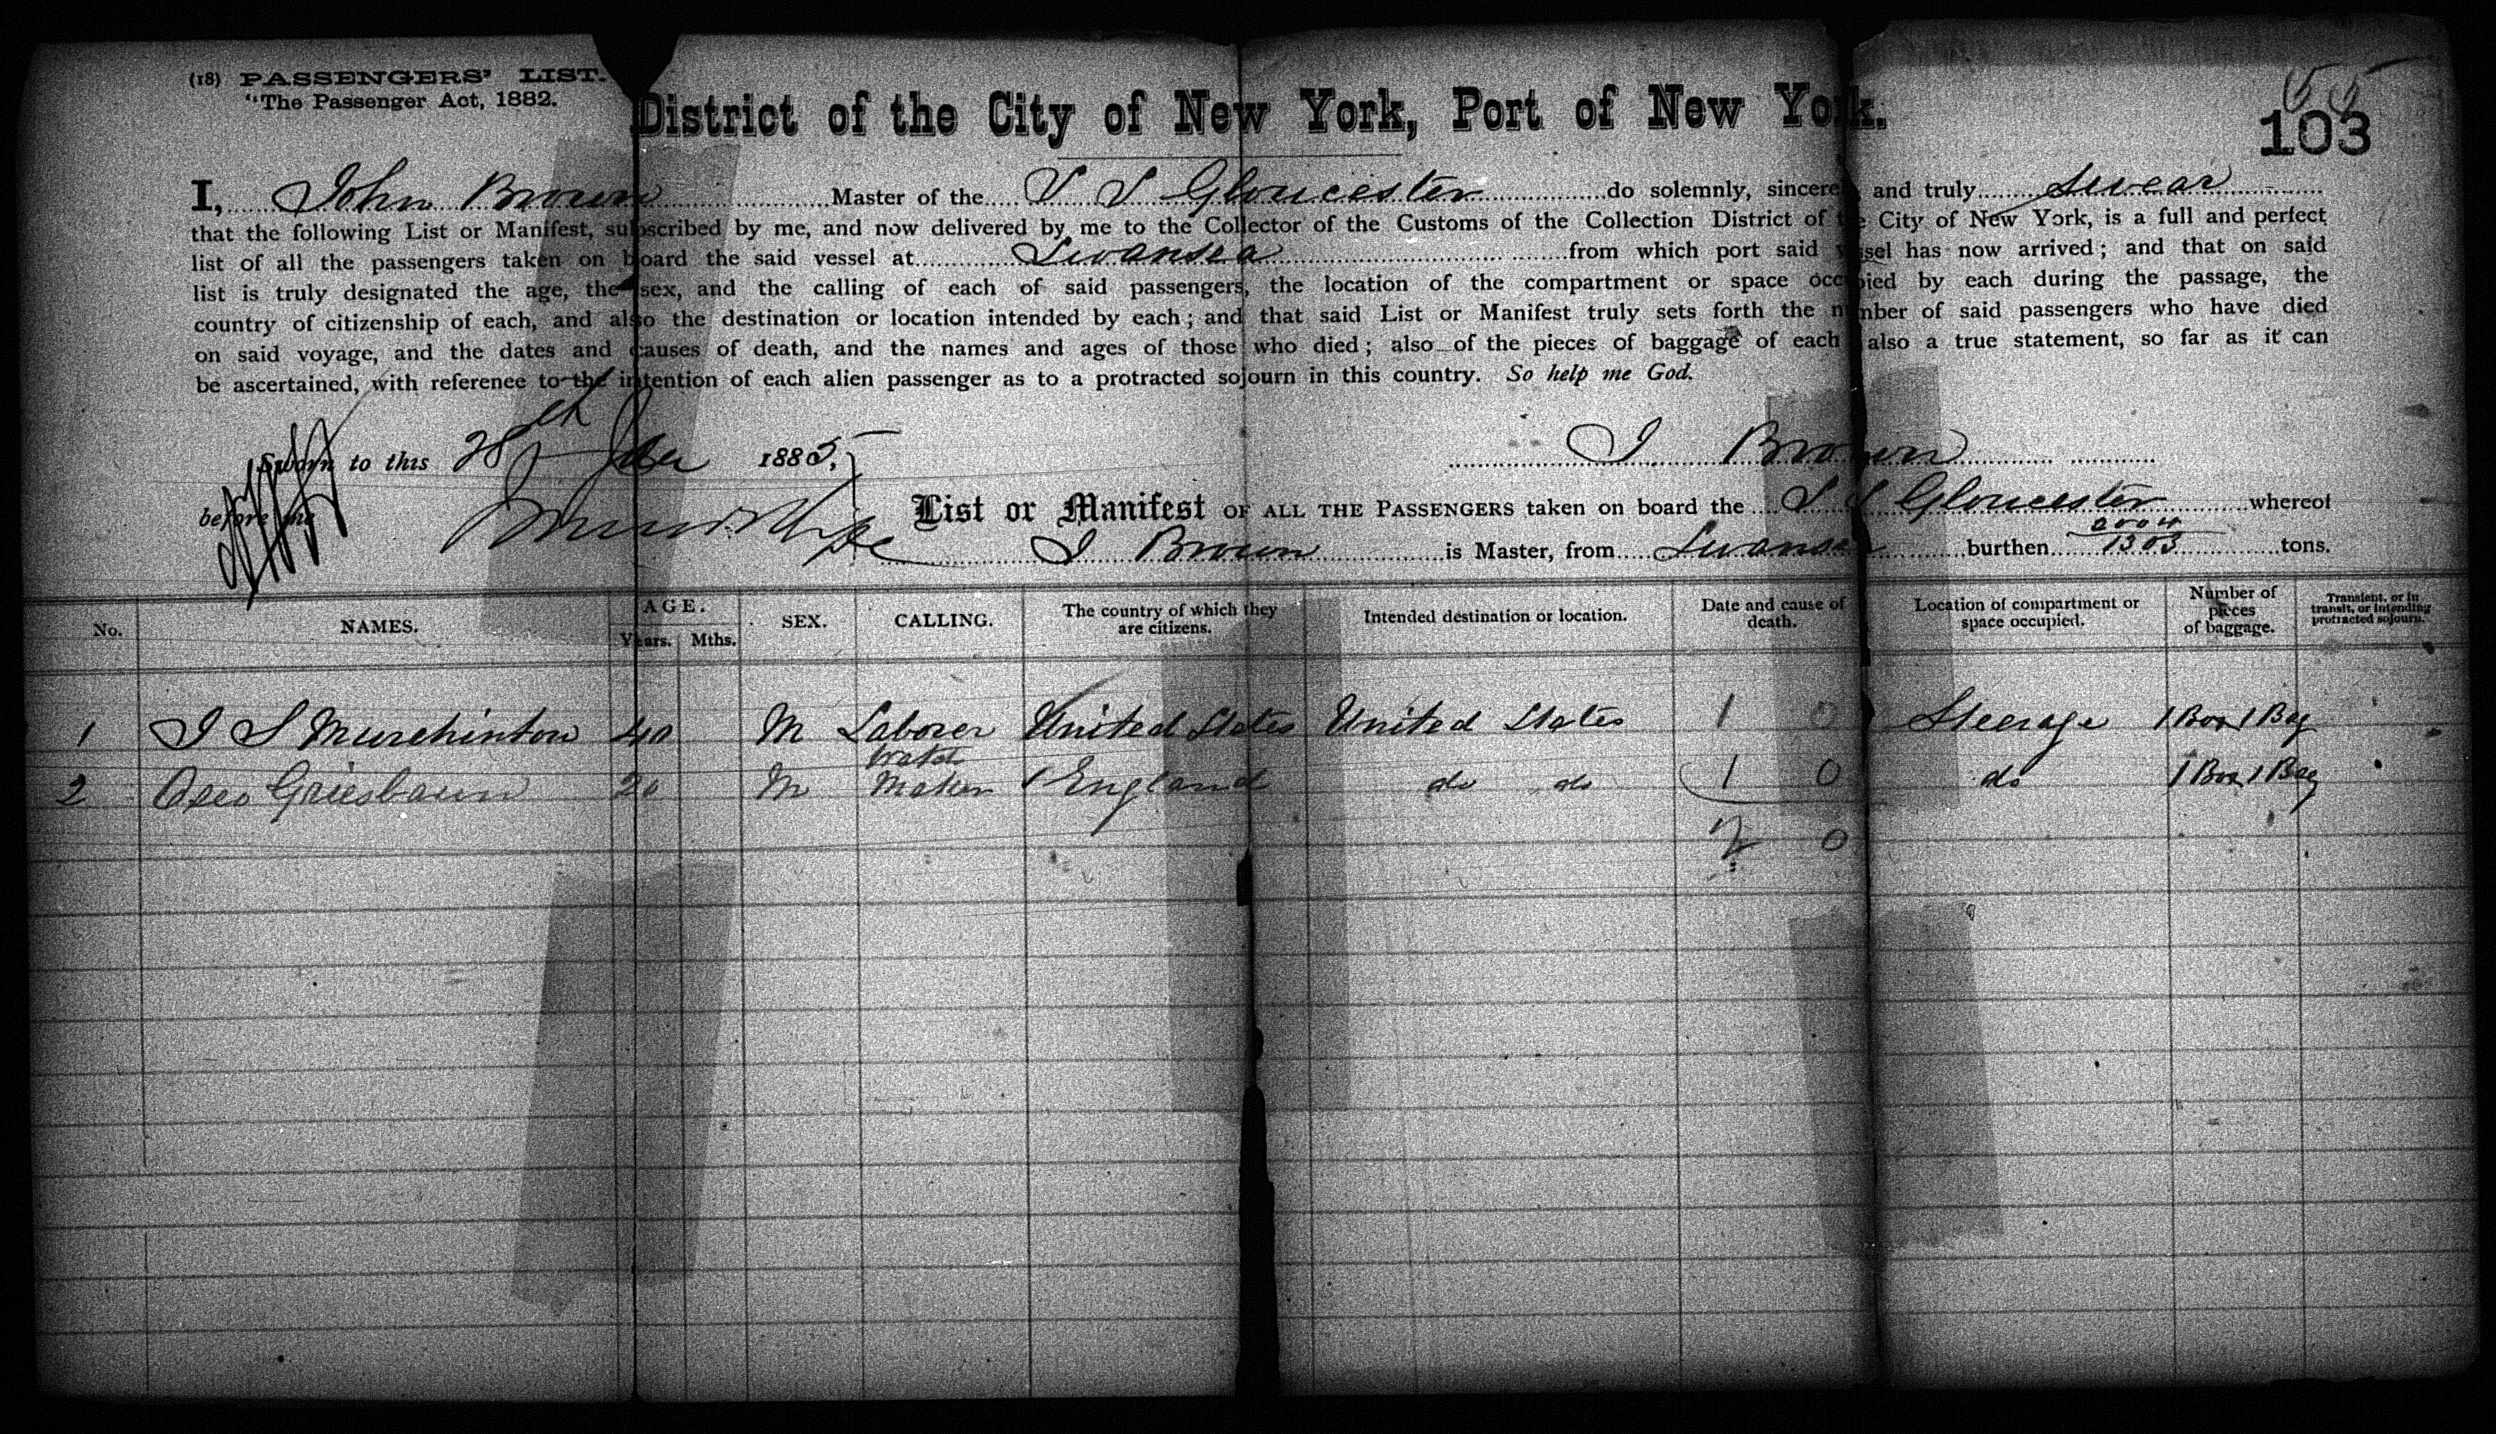 (18) PASSENGERS' LIST.
"The Passenger Act, 1882.
District of the City of New York, Port of New York.
55
103
I, John Brown Master of the S S Gloucester do solemnly, sincerely and truly swear
that the following List or Manifest, subscribed by me, and now delivered by me to the Collector of the Customs of the Collection District of the City of New York, is a full and perfect
list of all the passengers taken on board the said vessel at Swansea from which port said vessel has now arrived; and that on said
list is truly designated the age, the sex, and the calling of each of said passengers, the location of the compartment or space occupied by each during the passage, the
country of citizenship of each, and also the destination or location intended by each; and that said List or Manifest truly sets forth the number of said passengers who have died
on said voyage, and the dates and causes of death, and the names and ages of those who died; also of the pieces of baggage of each also a true statement, so far as it can
be ascertained, with reference to the intention of each alien passenger as to a protracted sojourn in this country. So help me God.
Sworn to this 28th 1885,
J. Brown
before me
List or Manifest OF ALL THE PASSENGERS taken on board the S S Gloucester whereof
J Brown is Master, from Swansea burthen 2004 1303 tons.
No. NAMES. AGE. Years. Mths. SEX. CALLING. The country of which they are citizens. Intended destination or location. Date and cause of death. Location of compartment or space occupied. Number of pieces of baggage. Transient, or in transit, or intending protracted sojourn.
1 J S Murchinton 40 M Laborer United States United States 1 0 Steerage 1 Box 1 Bag
2 Griesbaum 20 M Watch Maker England do do 1 0 do 1 Box 1 Bag
2 0